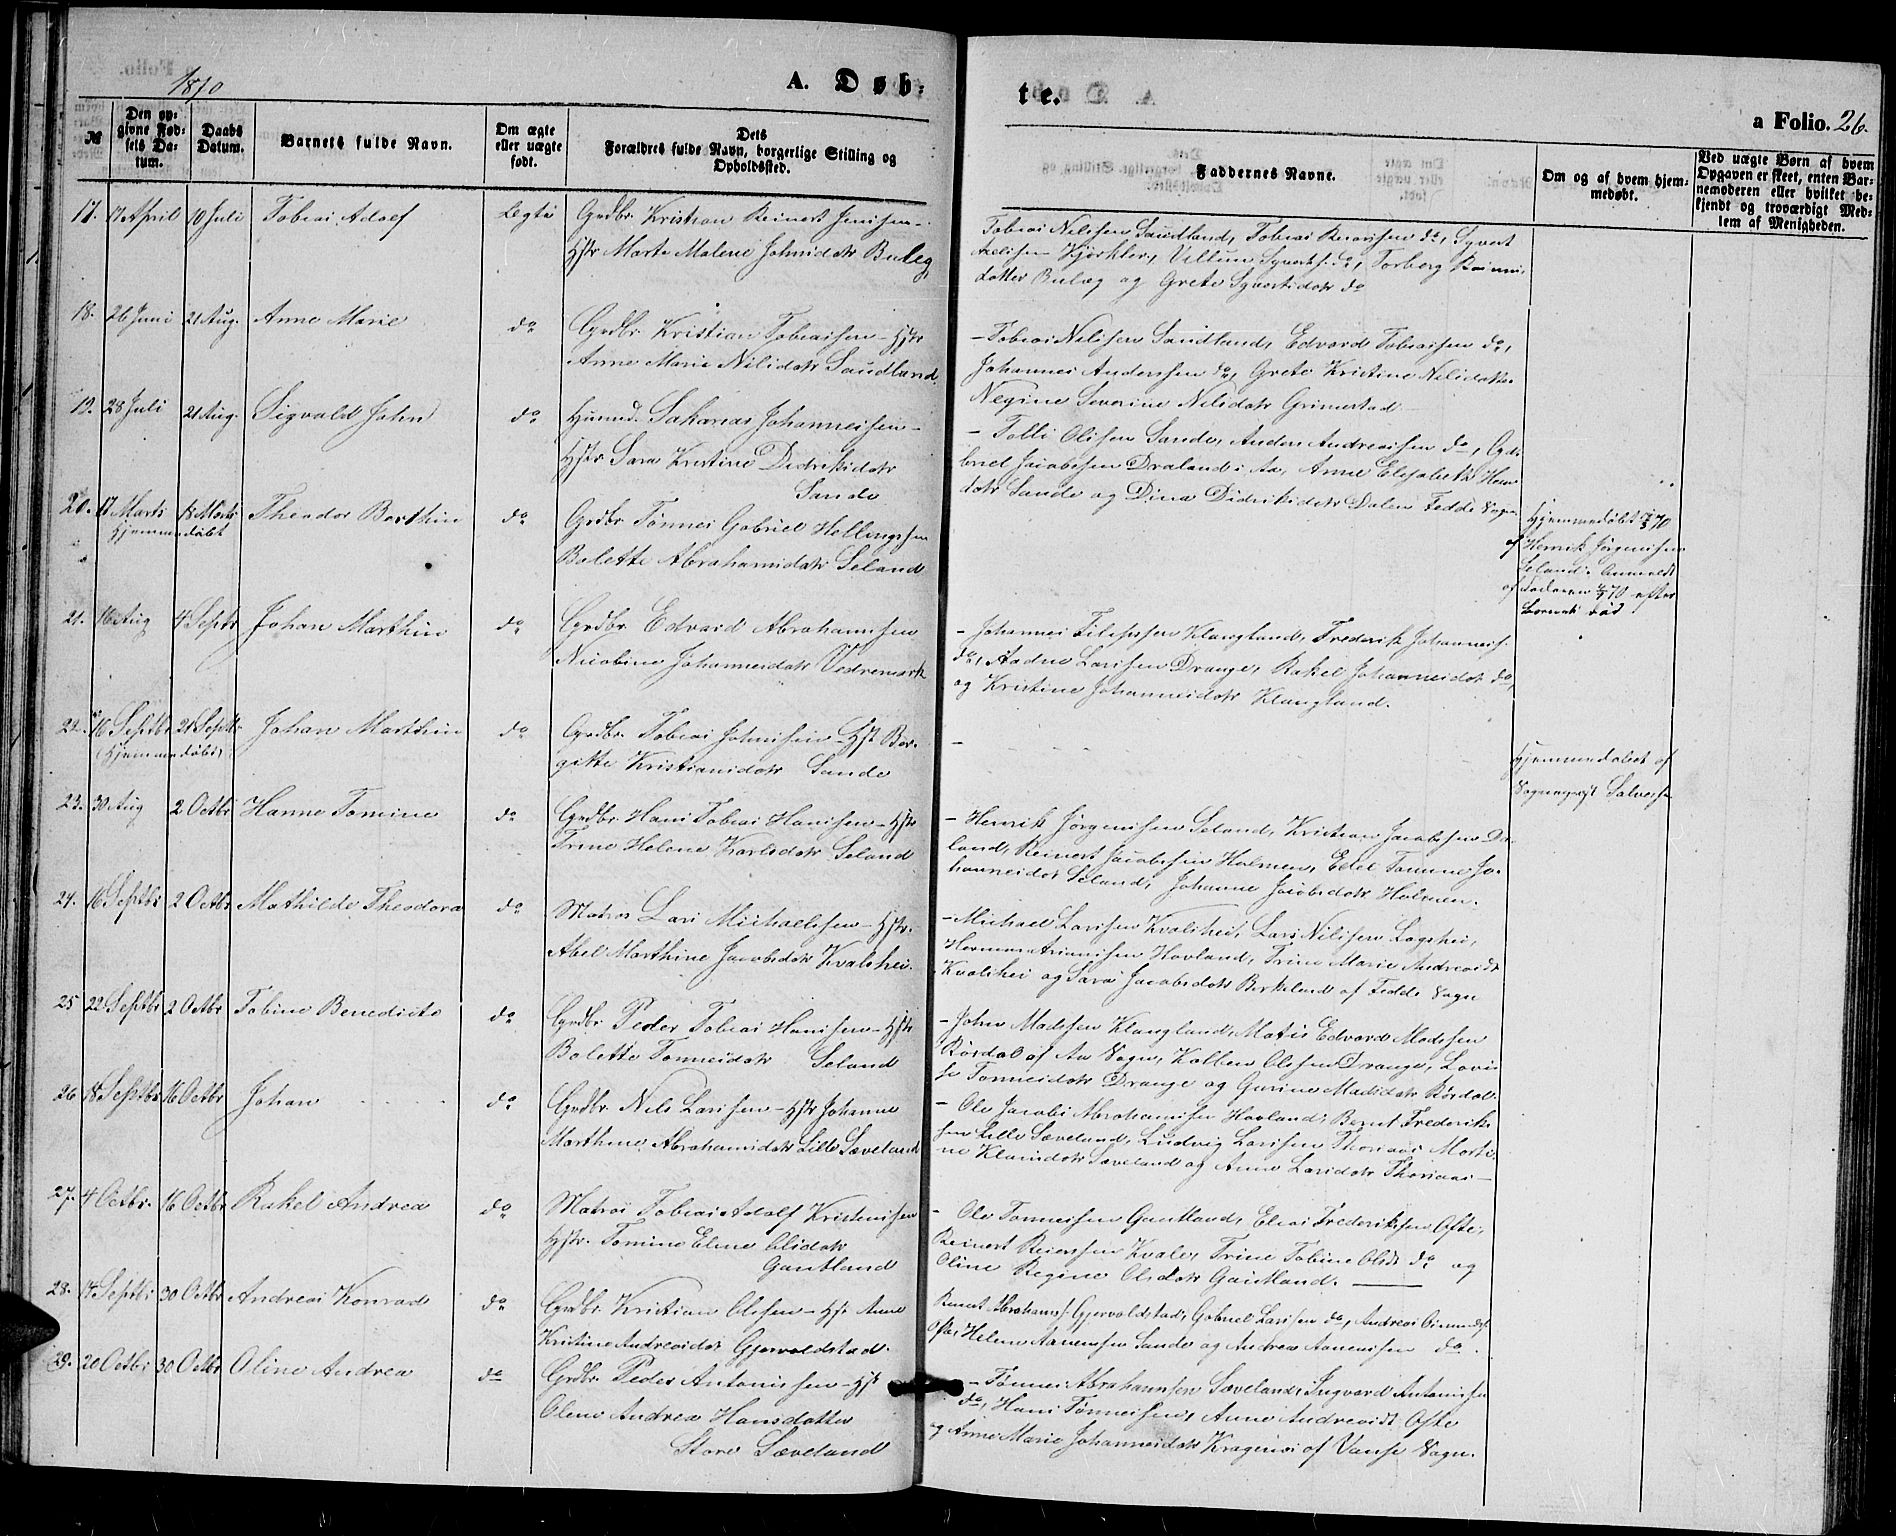 1870
A. Døb-
te.
a Folio. 26.
№
Den op-
givne Fød-
sels Da-
tum.
Daabs
Datum.
Barnets fulde Navn.
Om ægte
eller uægte
født.
Dets
Forældres fulde Navn, borgerlige Stilling og
Opholdssted.
Faddernes Navne.
Om og af hvem hjem-
medøbt.
Ved uægte Børn af hvem
Opgaven er skeet, enten Bar-
nemoderen eller hvilket be-
kjendt og troværdigt Med-
lem af Menigheden.
17. 17 April 10 Juli Tobias Adolf Ægte Grdbr. Kristian Reinert Jensen -
Hstr Marte Malene Johnsdatr Buleg
Tobias Nilssen Saudland, Tobias do, Syvert
Villum Syverts. do, Torborg
datter Bulæg og Grete Syvertsdatr do
18. 26 Juni 21 Aug. Anne Marie do Grdbr. Kristian Tobiassen - Hstr
Anne Marie Nilsdatr Saudland.
- Tobias Nilssen Saudland, Edvard Tobiassen do,
Johannes Anderssen do, Grete Kristine Nilsdatter
Negine Severine Nilsdatr Grimestad -
19. 28 Juli 21 Aug. Sigvald John do Husmd. Sakarias Johannessen -
Hstr. Sara Kristine Didriksdatr
Sande
- Tolli Olssen Sande, Anders Andreassen do,
Jacobsen Draland i Aa, Anne Elisabeth
datr Sande og Dina Didriksdatr Dalen Fedde Sogn
20. 17 Marts 18 Marts Theodor Barthin do Grdbr Tønnes Gabriel Hellingssen
Hjemmedøbt
Bolette Abrahamsdatr Seland
Hjemmedøbt 17/3 70
af Henrik Jørgensen
Seland. Anmeldt
af Faderen 70 efter
Barnets Død
21. 16 Aug 4 Septr Johan Marthin do Grdbr. Edvard Abrahamsen
Nicobine Johannesdatr Vedremark
- Johannes Filipsen Klungland, Frederik Johanness.
do, Aadne Larssen Drange, Rakel Johannesdatr do,
og Kristine Johannesdatr Klungland.
22. 16 Septbr 21 Septbr Johan Marthin do Grdbr. Tobias Johnsen - Hstr Ber-
(Hjemmedøbt)
gitte Kristiansdatr Sande
-
Hjemmedøbt af
Sognepræst Salvesen
23. 30 Aug 2 Octbr Hanne Tomine do Grdbr. Hans Tobias Hanssen - Hstr
Trine Helene Karlsdatr Seland
- Henrik Jørgensen Seland, Kristian Jacobsen Dr-
land, Reinert Jacobsen Holmen, Edel Tomine Jo-
hannesdtr Seland, Johanne Jacobsdatr Holmen.
24. 16 Septbr 2 Octbr Mathilde Theodora do Matros Lars Michaelsen - Hstr.
Abel Marthine Jacobsdatr Kvalshei.
- Michael Larssen Kvalshei, Lars Nilssen Lagshei,
Herman Hovland, Trine Marie Andreasdt
Kvalshei og Sara Jacobsdatr Birkeland af Fedde Sogn
25 22 Septbr 2 Octbr Tobine Benedicte do Grdbr Peder Tobias Hanssen - Hstr
Bolette Tønnesdatr Seland
- John Madssen Klungland, Matis Edvard Madssen
Rørdal af Aa Sogn, Kolben Olssen Drange, Lovi-
se Tønnesdatr Drange og Gurine Madsdatr Rørdal.
26 18 Septbr 16 Octbr Johan do Grdbr. Nils Larssen - Hstr Johanne
Marthine Abrahamsdatr Lille Sæveland
- Ole Jacob Abrahamssen Hovland, Bernt Frederik-
sen Lille Sæveland, Ludvig Larssen Thorsaas Marthi-
ne Klausdatr Sæveland og Anne Larsdatr Thorsaas -
27. 4 Octbr. 16 Octbr Rakel Andrea do Matros Tobias Adolf Kristenssen
Hstr. Tomine Elene Olsdatr
Gautland
- Ole Tønnessen Gautland, Elias Frederiksen Ofte,
Reinert Reierssen Kvale, Trine Tobine Olsdt do og
Oline Regine Olsdatr Gautland.
28. 14 Septbr 30 Octbr Andreas Konrad do Grdbr. Kristian Olssen - Hst Anne
Kristine Andreasdtr Gjervoldstad.
Bernt Abrahams. Gjervoldstad, Gabriel Larssen do, Andreas
Ofte, Helene Aanenssen Sande og Andrea Aanenssen do.
29. 20 Octbr 30 Octbr Oline Andrea do Grdbr. Peder Antonissen - Hst
Olene Andrea Hansdatter
Store Sæveland
- Tønnes Abrahamsen Sæveland, Ingvard Antonissen
do, Hans Tønnessen, Anne Andreasdt Ofte
og Anne Marie Johannesdatr af Vanse Sogn.